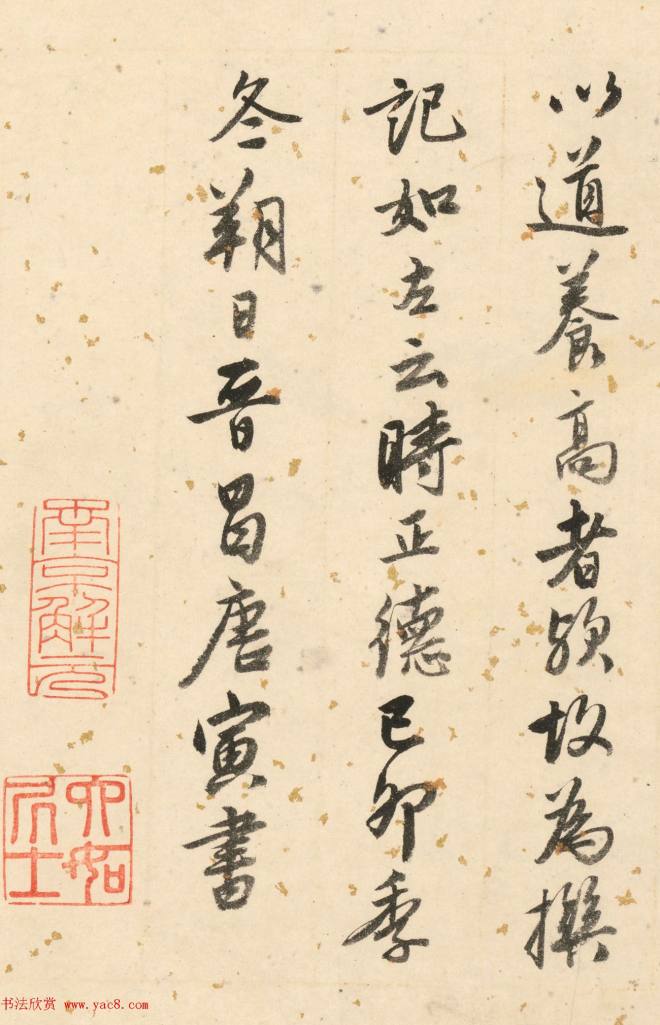 以道養高者歟故為撰
記如左云時正德己卯季
冬朔日晉昌唐寅書
南京解元
六如居士
书法欣赏 www.yac8.com